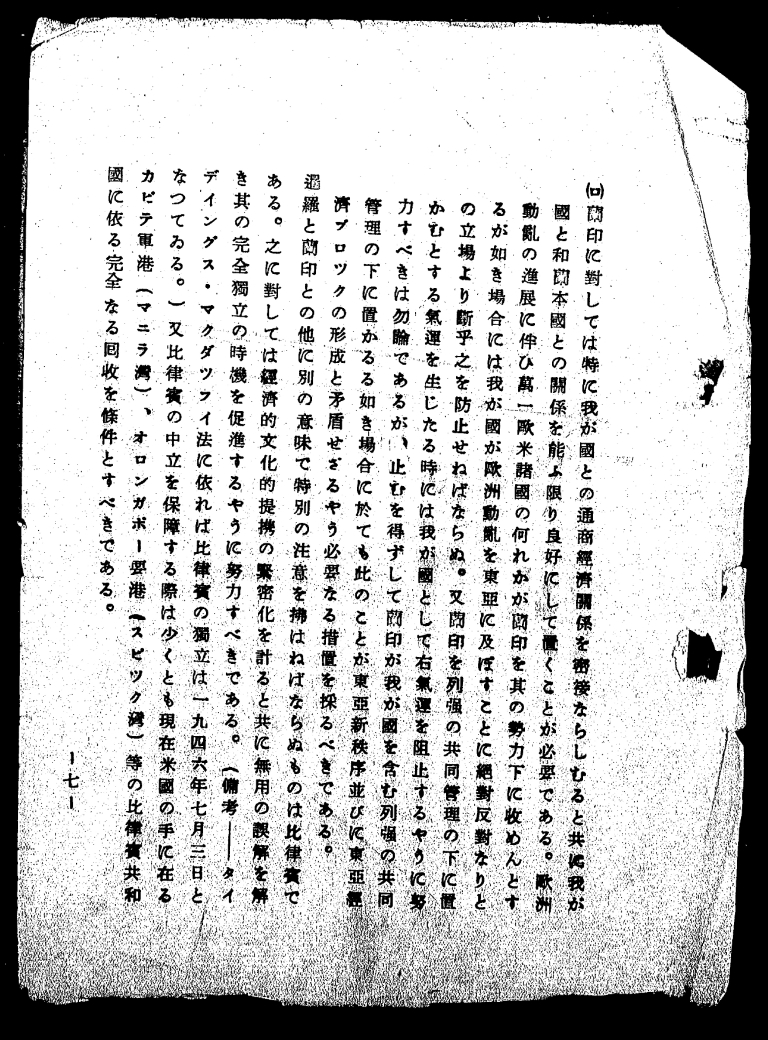 (ロ)蘭印に對しては特に我が國との通商經濟關係を密接ならしむると共に我が
國と和蘭本國との關係を能ふ限り良好にして置くことが必要である。歐洲
動亂の進展に伴ひ萬一歐米諸國の何れかが蘭印を其の勢力下に收めんとす
るが如き場合には我が國が歐洲動亂を東亞に及ぼすことに絕對反對なりと
の立場より斷乎之を防止せねばならぬ。又蘭印を列强の共同管理の下に置
かむとする氣運を生じたる時には我が國として右氣運を阻止するやうに努
力すべきは勿論であるが、止むを得ずして蘭印が我が國を含む列强の共同
管理の下に置かるる如き場合に於ても此のことが東亞新秩序並びに東亞經
濟ブロックの形成と矛盾せざるやう必要なる措置を採るべきである。
暹羅と蘭印との他に別の意味で特別の注意を拂はねばならぬものは比律賓で
ある。之に對しては經濟的文化的提携の緊密化を計ると共に無用の誤解を解
き其の完全獨立の時機を促進するやうに努力すべきである。(備考――タイ
デイングス・マクダツフイ法に依れば比律賓の獨立は一九四六年七月三日と
なつてゐる。)又比律賓の中立を保障する際は少くとも現在米國の手に在る
カビテ軍港(マニラ灣)、オロンガポー要港(スビツク灣)等の比律賓共和
國に依る完全なる囘收を條件とすべきである。
ー七ー